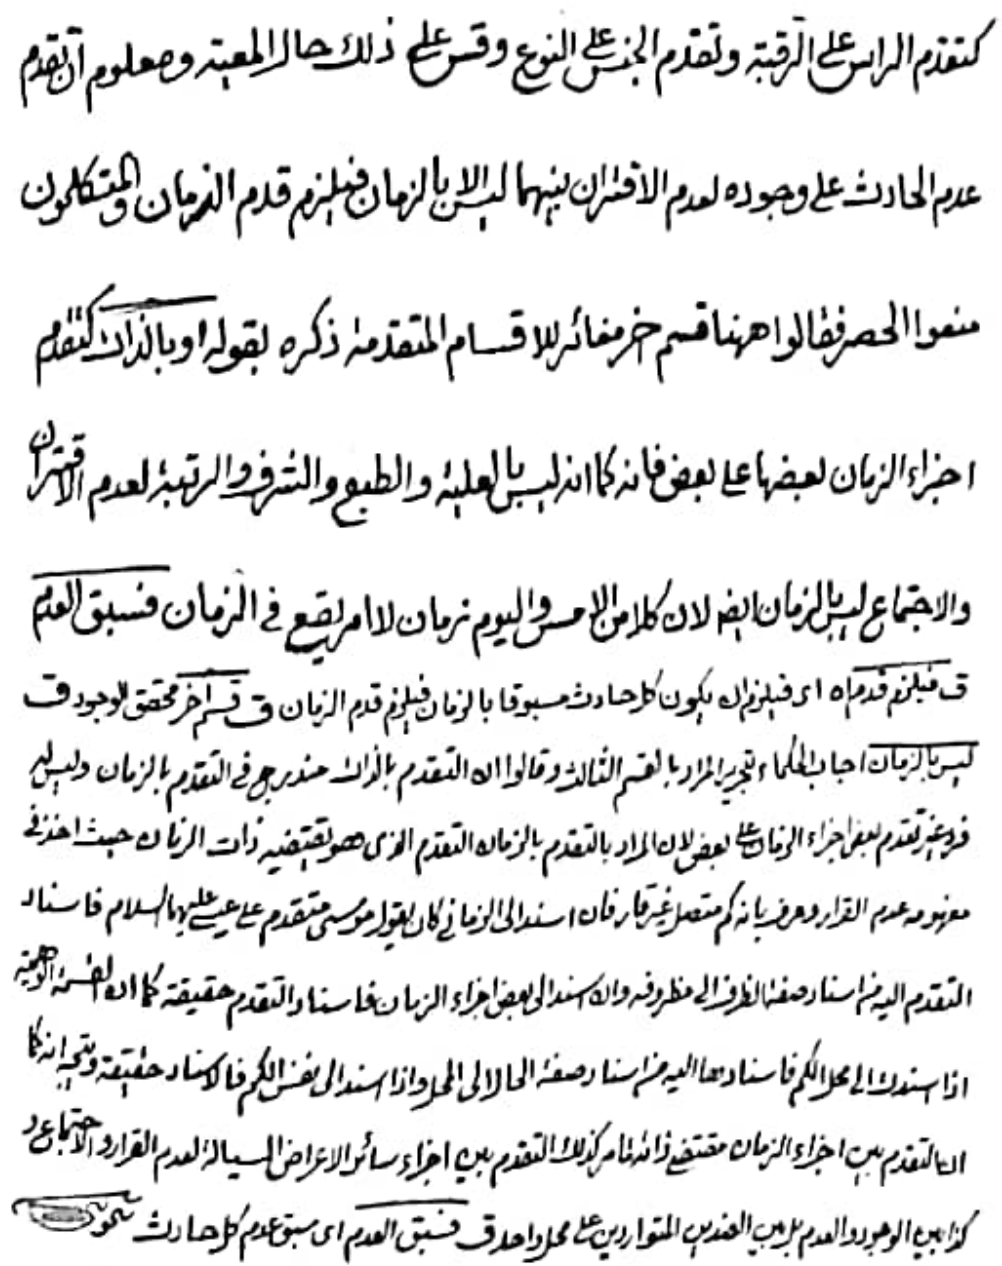 كتقدم الراس على الرقبة وتقدم الجنس على النوع وقس على ذلك حال المعية ومعلوم ان تقدم
عدم الحادث على وجوده لعدم الاقتران بينهما ليس الا بالزمان فيلزم قدم الزمان والمتكلمون
منعوا الحصر فقالوا ههنا قسم اخر مغائر للاقسام المتقدمة ذكره بقوله او بالذات كتقدم
اجزاء الزمان بعضها على بعض فانه كما انه ليس بالعلية والطبع والشرف والرتبة لعدم الاقتران
والاجتماع ليس بالزمان ايضا لان كلا من الامس واليوم زمان لا امر يقع في الزمان فسبق العدم
ق فيلزم قدمه اه اى فيلزم ان يكون كل حادث مسبوقا بالزمان فيلزم قدم الزمان ق قسم اخر محقق الوجود ق
ليس بالزمان اجاب الحكماء بتحرير المراد بالقسم الثالث وقالوا ان التقدم بالذات مندرج في التقدم بالزمان وليس له
فرد غير تقدم بعض اجزاء الزمان على بعض لان المراد بالتقدم بالزمان التقدم الذى هو يقتضيه ذات الزمان حيث اخذ في
مفهومه عدم القرار وعرف بانه كم متصل غير قار فان اسند الى الزمانى كان يقول موسى متقدم على عيسى عليهما السلام فاسناد
التقدم اليه من اسناد صفة الظرف الى مظروفه وان اسند الى بعض اجزاء الزمان فاسناد التقدم حقيقة كما ان القسمة الوهمية
اذا اسندت الى محل الكم فاسنادها اليه من اسناد صفة الحال الى المحل واذا اسند الى نفس الكم فالاسناد حقيقة ويتجه انه كما
ان التقدم بين اجزاء الزمان مقتضى ذاته فامر كذلك التقدم بين اجزاء سائر الاعراض السيالة لعدم القرار والاجتماع و
كذا بين الوجود والعدم بل بين الضدين المتواردين على محل واحد ق فسبق العدم اى سبق عدم كل حادث